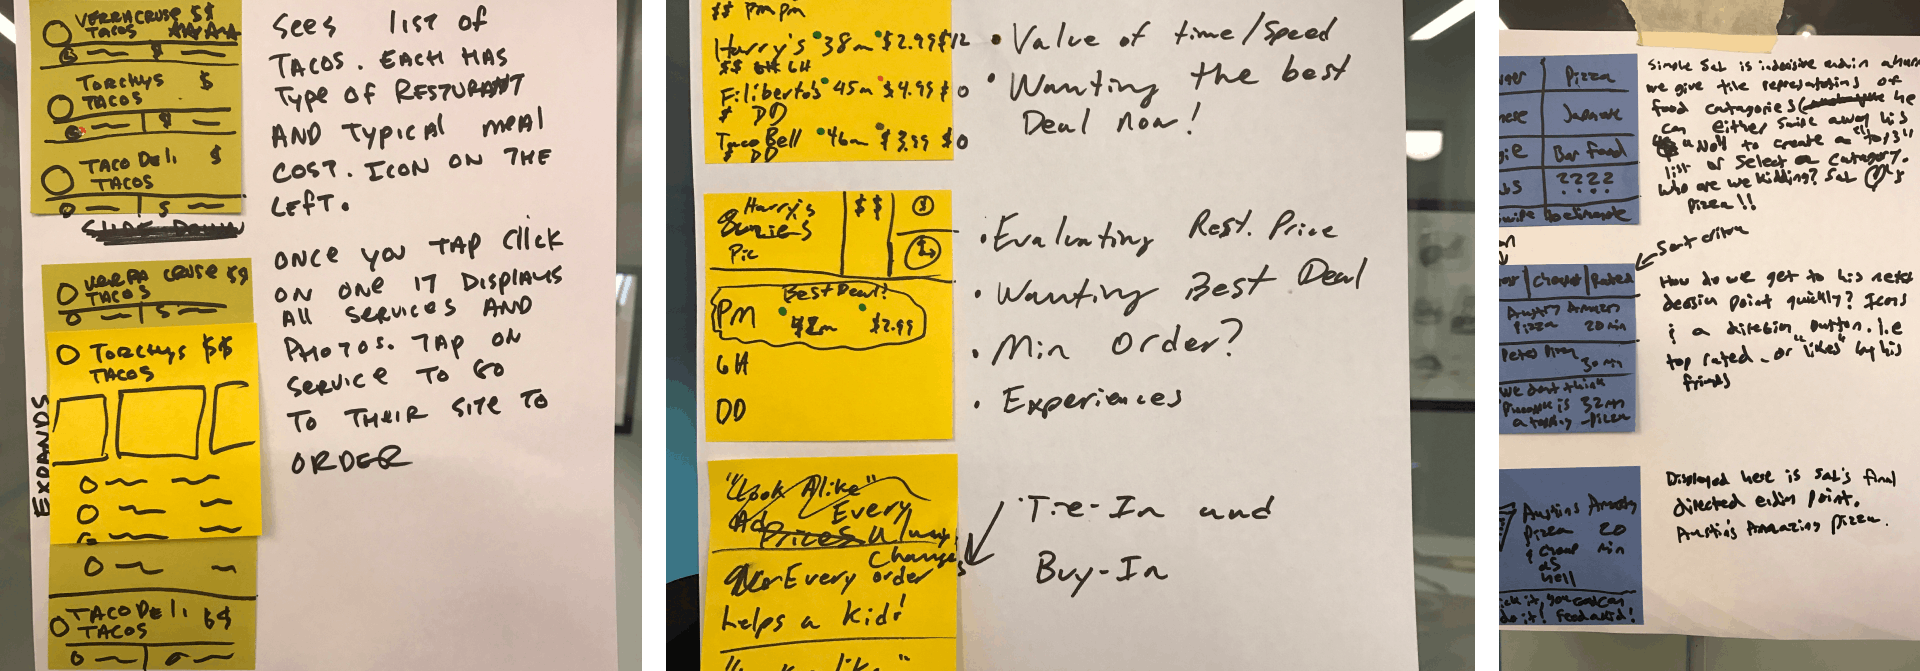 VERRACRUSE $$
TACOS
$
TORCHYS $
TACOS
$
TACO DELI $
TACOS
SLIDE DOWN
VERRA CRUSE $$
TACOS
TORCHYS $$
TACOS
EXPANDS
TACO DELI
TACOS
SEES LIST OF
TACOS. EACH HAS
TYPE OF RESTURANT
AND TYPICAL MEAL
COST. ICON ON THE
LEFT.
ONCE YOU TAP CLICK
ON ONE IT DISPLAYS
ALL SERVICES AND
PHOTOS. TAP ON
SERVICE TO GO
TO THEIR SITE TO
ORDER
$$ pm pm
Harry's 38m $2.99 $12
$$ GH GH
Filiberto's 45m $4.99 $0
$ DD
Taco Bell 46m $3.99 $0
$ DD
• Value of time/speed
• Wanting the best
Deal now!
Harry's $$ $
Pic
Best Deal!
PM 42m $2.99
GH
DD
• Evaluating Rest. Price
• Wanting Best Deal
• Min Order?
• Experiences
"Look Alike"
Ad Every
Prices Always
Changes
Every order
helps a kid!
Tie-In and
Buy-In
Pizza
Japanese
Bar Food
????
Simple Sal is indecisive
we give tile representations of
food catagories he
can either swipe away his
"No" to create a "top 3"
list or select a catagory.
who are we kidding? Sal ♡'s
pizza!!
Sort criteria
Cheapest Rated
Austin's Amazin
Pizza 20 min
Petes Pizza
30 min
we dont think
Pineapple is 32min
a topping pizza
How do we get to his next
decision point quickly? Icons
& a direction button. I.e
top rated or "likes" by his
friends
Austins Amazing
Pizza 20
& cheap min
as
hell
Displayed here is Sal's final
directed eatin point.
Austin's Amazing pizza.